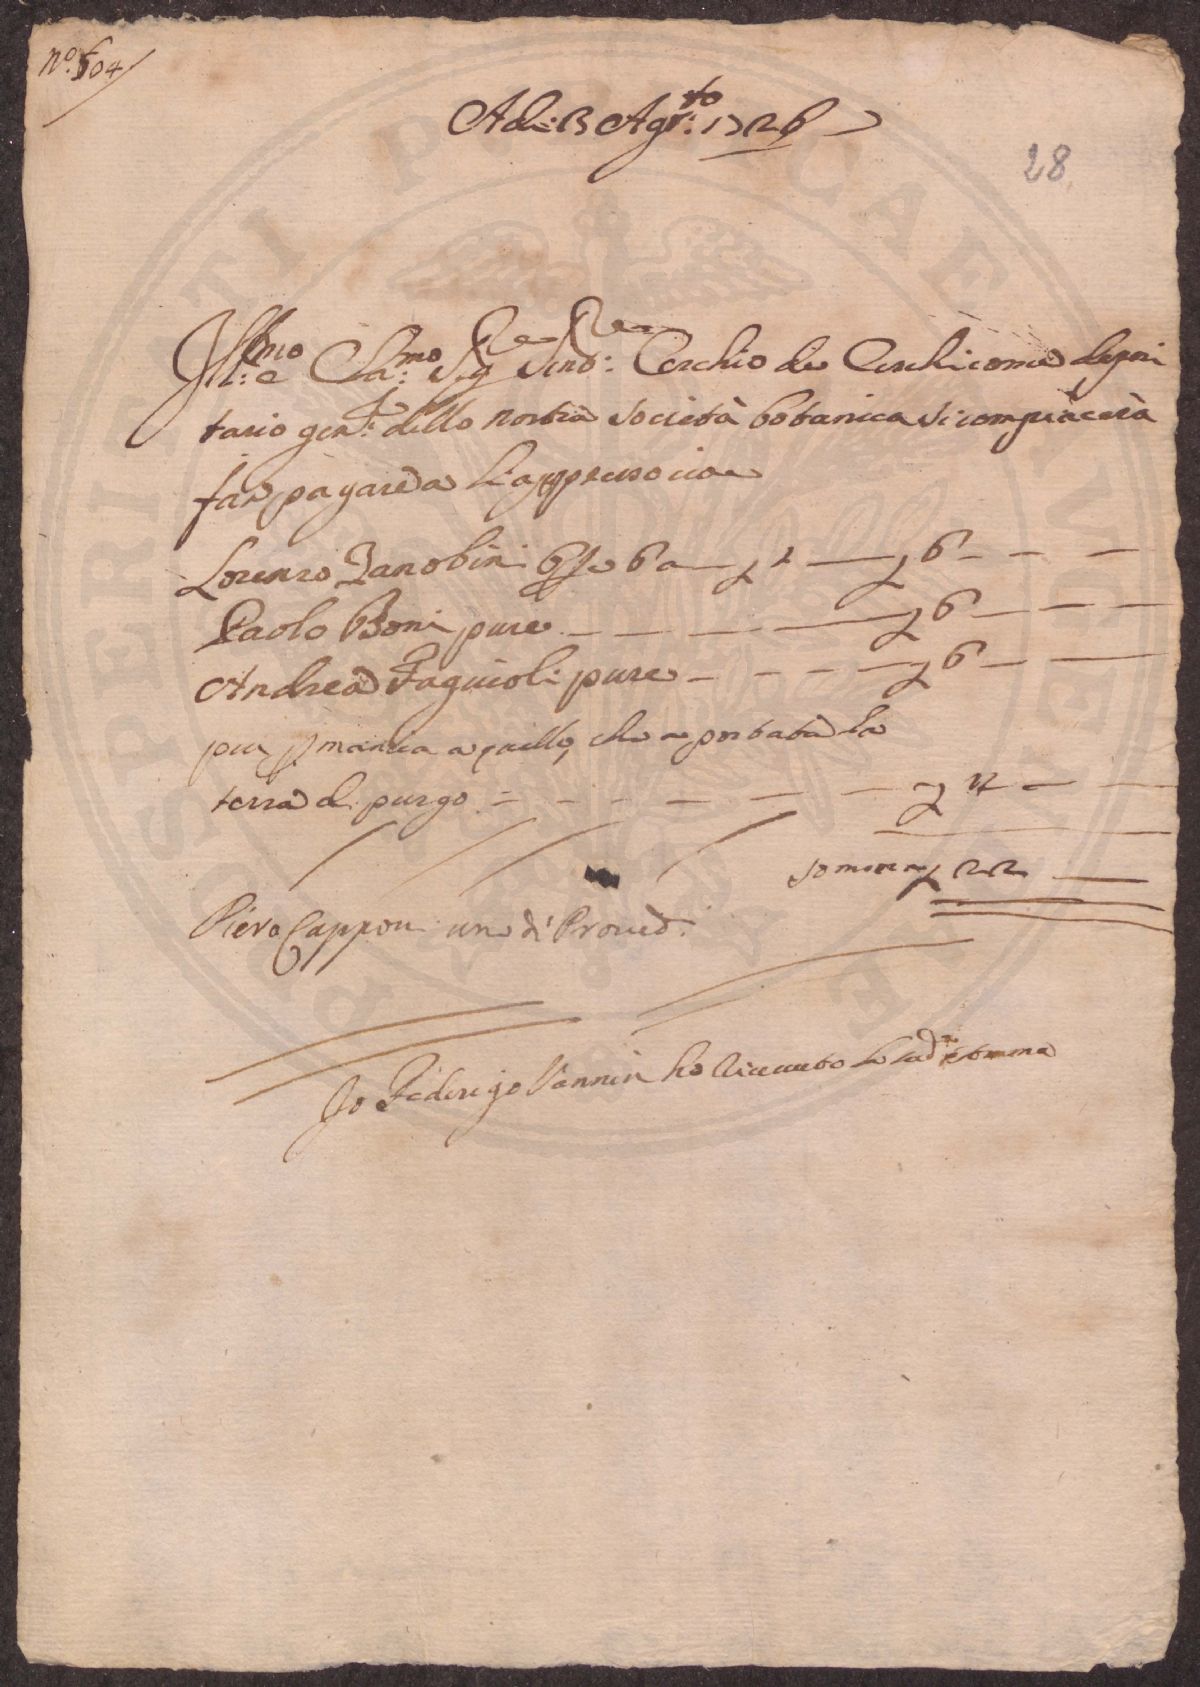 N.o 504
Adi 3 Ag.to 1726
28
Ill.mo e Cla.mo Sig.re Sen.re Cerchio de Cerchi come deposi
tario gen.le della nostra società botanica si compiacerà
far pagare a li appreso cioe
Lorenzo Zanobini 6 6 a 1 — 6 — — —
Paolo Boni pure — — — — 6 — — —
Andrea Faguioli pure — — — — 6 — —
piu p mancia a quello, che a portata la
terra di purgo — — — — — — 4 — —
somma 22 —
Piero Capponi uno de' Proued.i
Io Federigo Vannini ho riceuuto la sud.a somma